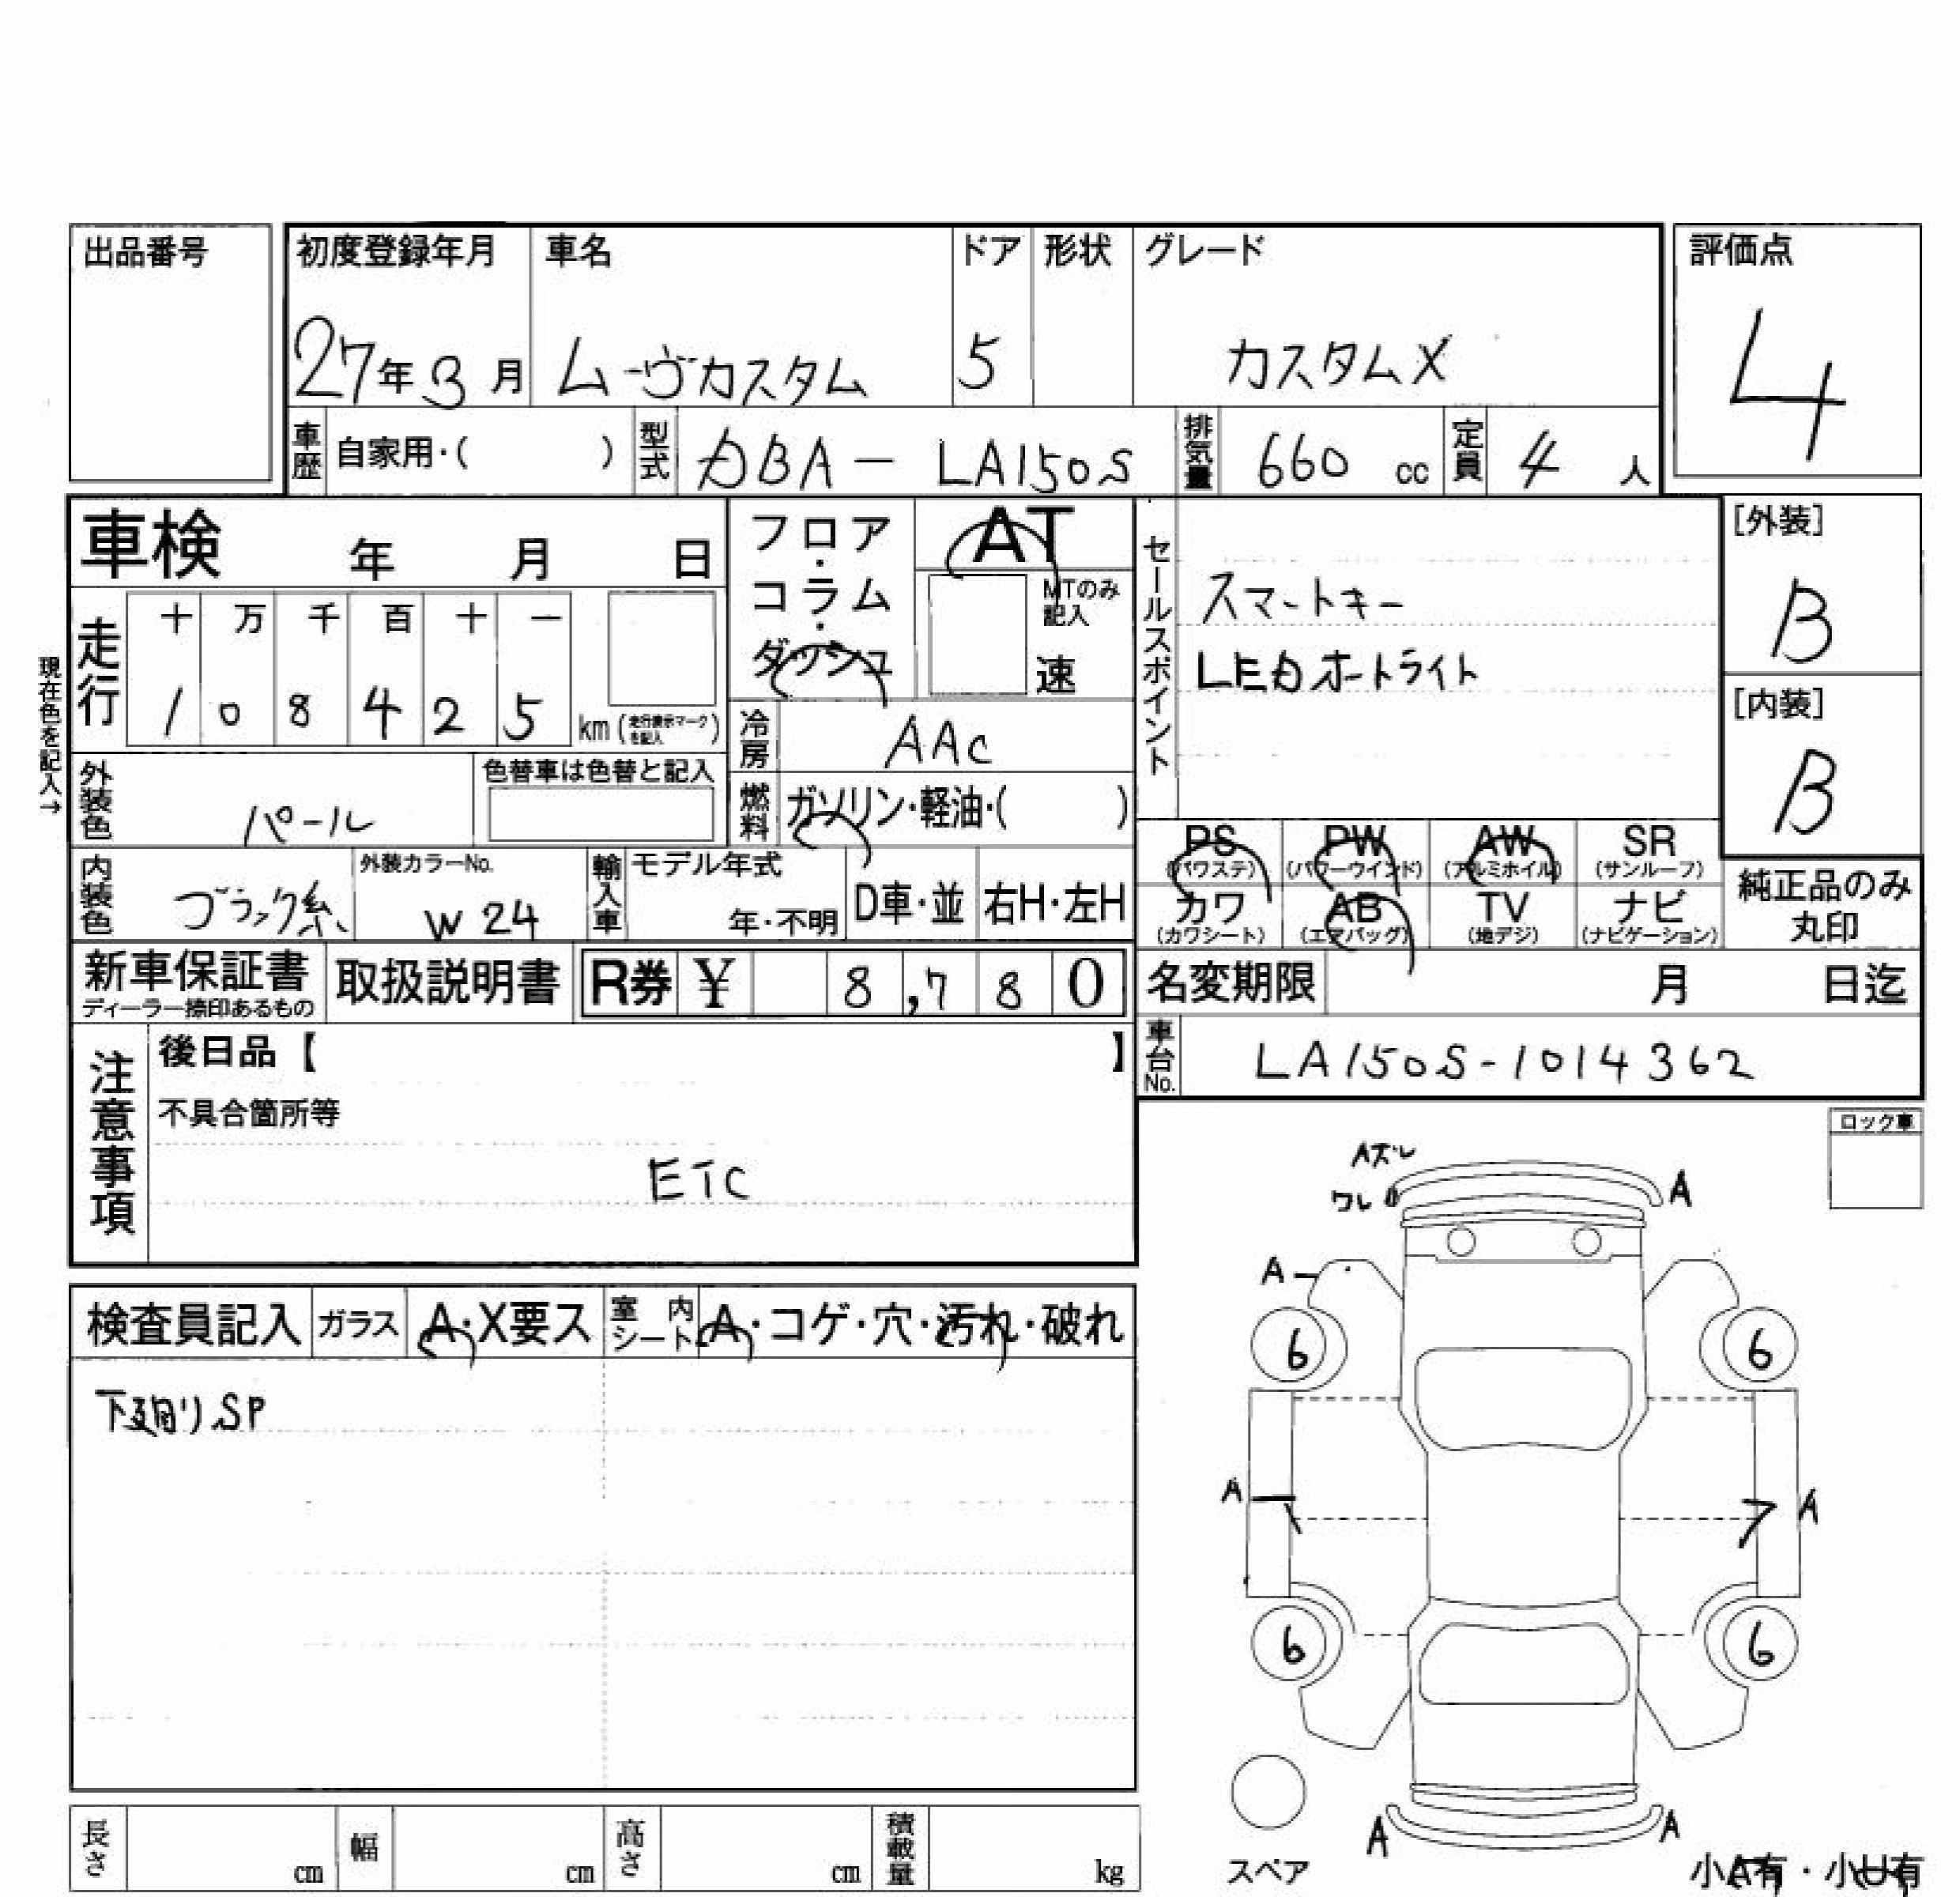 出品番号
初度登録年月 車名 ドア 形状 グレード 評価点
27年3月 ムーヴカスタム 5 カスタムX 4
車歴 自家用・( ) 型式 DBA－LA150S 排気量 660 cc 定員 4 人
車検 年 月 日
フロア・コラム・ダッシュ
AT
MTのみ記入
速
セールスポイント
スマートキー
LEDオートライト
[外装]
B
[内装]
B
現在色を記入→
走行 十 万 千 百 十 一
1 0 8 4 2 5 km (走行表示マークを記入)
冷房 AAC
外装色 パール 色替車は色替と記入
燃料 ガソリン・軽油・( )
PS (パワステ) PW (パワーウインド) AW (アルミホイル) SR (サンルーフ)
カワ (カワシート) AB (エアバッグ) TV (地デジ) ナビ (ナビゲーション)
純正品のみ丸印
内装色 ブラック系 外装カラーNo. W24 輸入車 モデル年式 年・不明 D車・並 右H・左H
新車保証書 ディーラー捺印あるもの 取扱説明書 R券 ¥ 8,780
名変期限 月 日迄
車台No. LA150S-1014362
注意事項
後日品【 】
不具合箇所等
ETC
ロック車
Aズレ
ワレ A
A
6 6
A A
6 6
A A
スペア
小A有・小U有
検査員記入 ガラス A・X要ス 室内シート A・コゲ・穴・汚れ・破れ
下廻りSP
長さ cm 幅 cm 高さ cm 積載量 kg